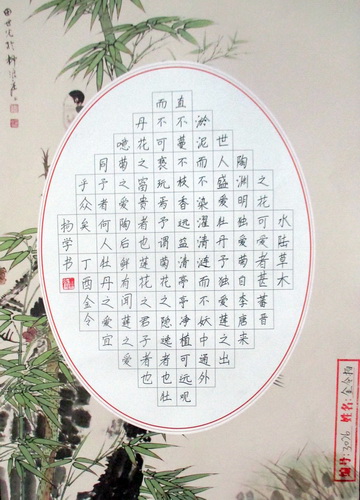 水陆草木
之花可爱者甚蕃晋
陶渊明独爱菊自李唐来
世人盛爱牡丹予独爱莲之出
淤泥而不染濯清涟而不妖中通外
直不蔓不枝香远益清亭亭净植可远观
而不可亵玩焉予谓菊花之隐逸者也牡
丹花之富贵者也莲花之君子者也
噫菊之爱陶后鲜有闻莲之爱
同予者何人牡丹之爱宜
乎众矣 丁酉金令
杨学书
编号:3076 姓名:金令杨